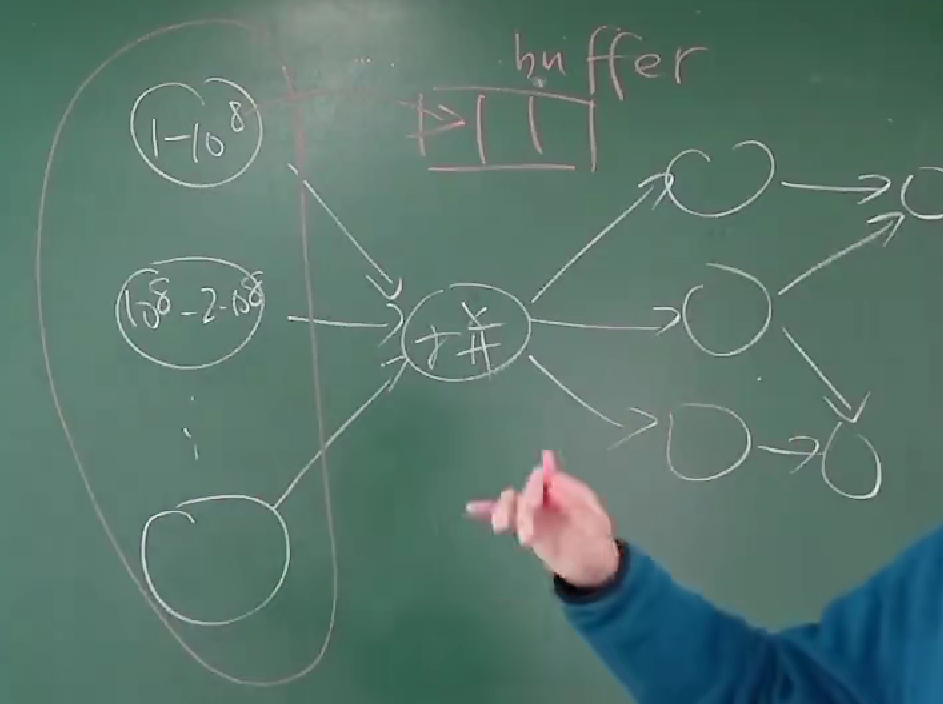 buffer
1-10^8
10^8-2·10^8